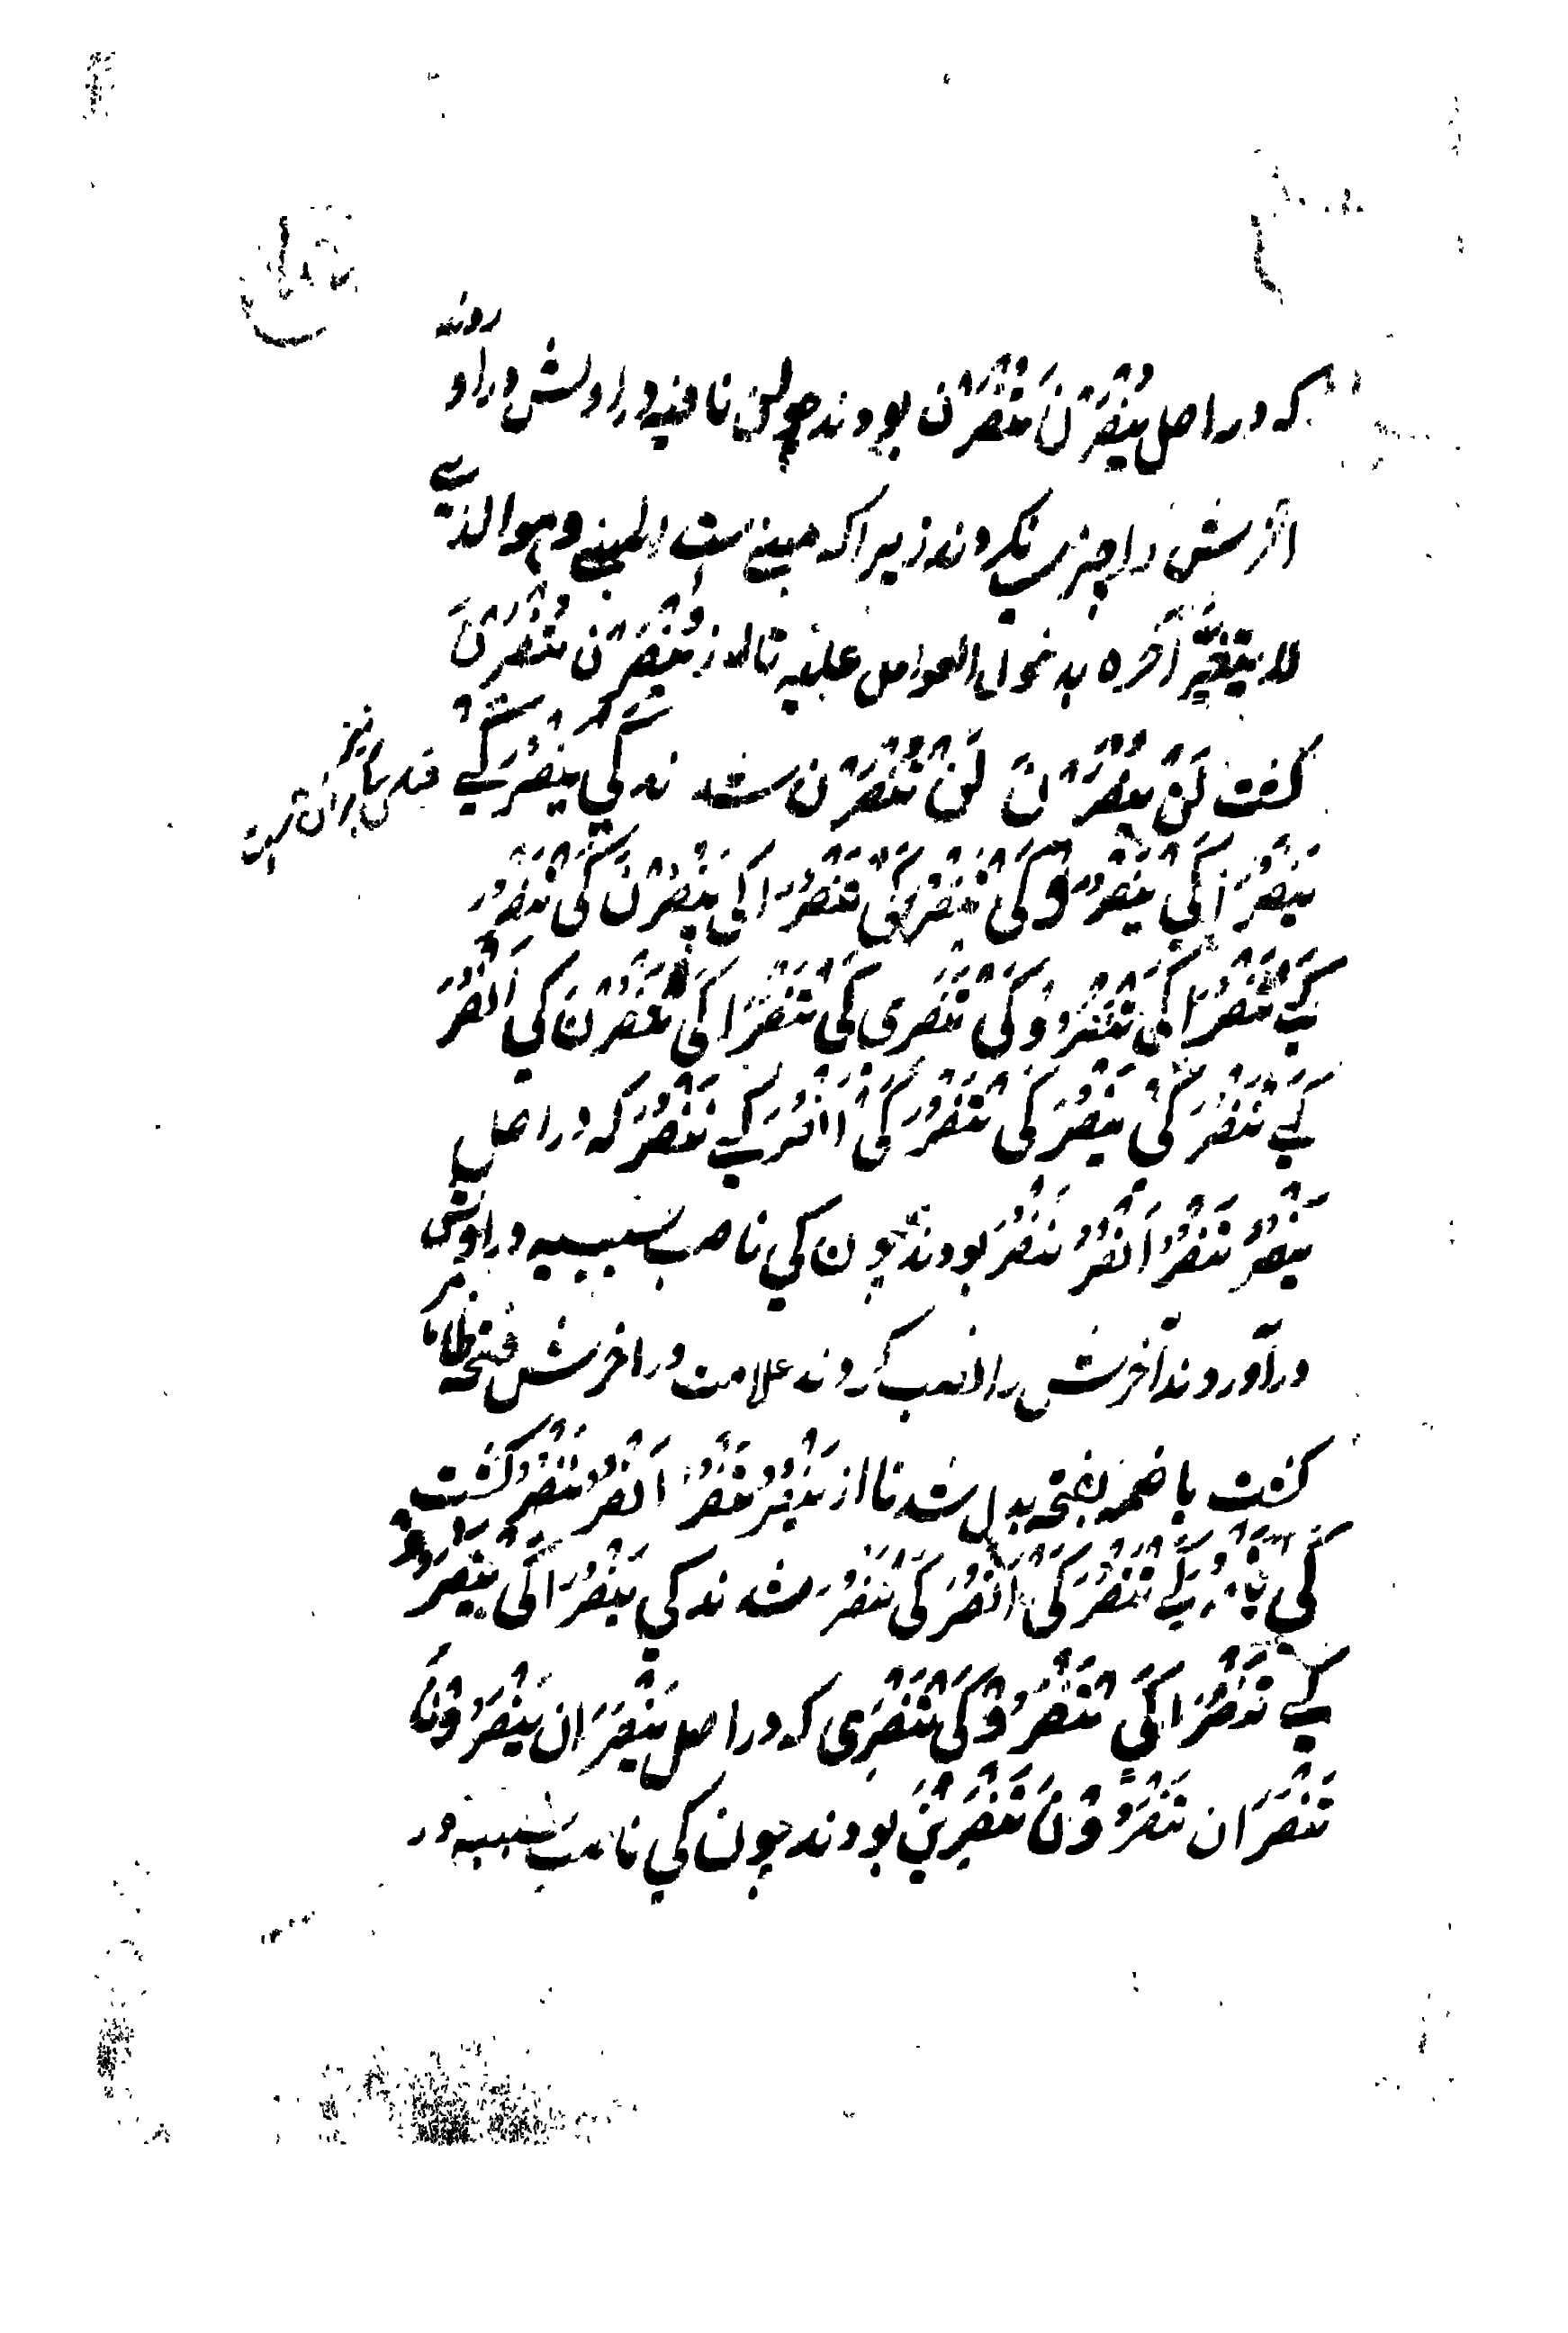 که در اصل یُنْصَرْنَ تُنْصَرْنَ بودند چو لن نافیه در اولش در آو
روند
آخرش را چیزی نکردند زیرا که مبنی ست المبنی و هوالذی
لا یتغیّر آخره بدخول العوامل علیه تا از یُنْصَرْنَ تُنْصَرْنَ
گشت لَنْ یُنْصَرْنَ لَنْ تُنْصَرْنَ شدند کَیْ یَنْصُرَ کَیْ
یَنْصُرَا کَیْ یَنْصُرُوْ کَیْ تَنْصُرَ کَیْ تَنْصُرَا کَیْ یَنْصُرْنَ کَیْ تَنْصُرَ
کَیْ تَنْصُرَا کَیْ تَنْصُرُوْ کَیْ تَنْصُرِی کَیْ تَنْصُرَا کَیْ تَنْصُرْنَ کَیْ اَنْصُرَ
کَیْ نَنْصُرَ کَیْ یَنْصُرَ کَیْ تَنْصُرَ کَیْ اَنْصُرَ کَیْ نَنْصُرَ که در اصل
یَنْصُرُ تَنْصُرُ اَنْصُرُ نَنْصُرُ بودند چون کی ناصب سببیه در اولش
در آوردند آخرش را نصب کردند علامت در آخرش فتحه ظاهر
گشت یا ضمه بفتحه بدل شد تا از یَنْصُرُ تَنْصُرُ اَنْصُرُ نَنْصُرُ گشت
کَیْ یَنْصُرَ کَیْ تَنْصُرَ کَیْ اَنْصُرَ کَیْ نَنْصُرَ شدند کی یَنْصُرَا کَیْ یَنْصُرُوْ
کَیْ تَنْصُرَا کَیْ تَنْصُرُوْ کَیْ تَنْصُرِی که در اصل یَنْصُرَانِ یَنْصُرُوْنَ
تَنْصُرَانِ تَنْصُرُوْنَ تَنْصُرِیْنَ بودند چون کی ناصب سببیه در